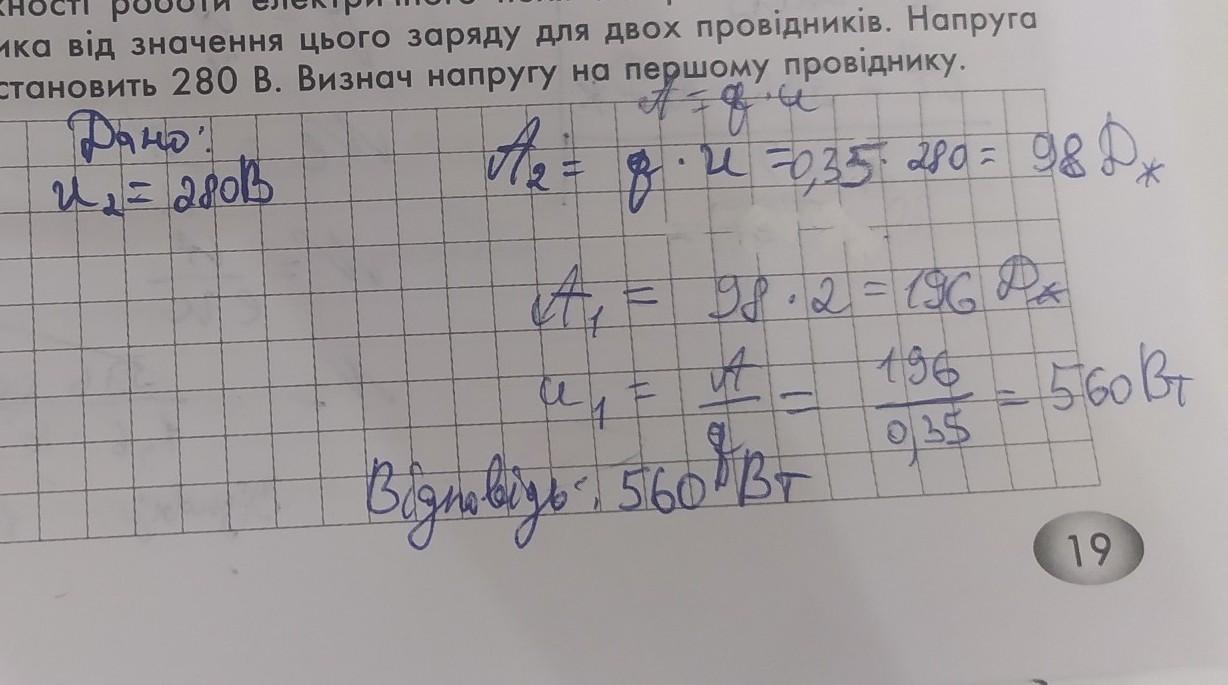 роботи
ика від значення цього заряду для двох провідників. Напруга
становить 280 В. Визнач напругу на першому провіднику.
A = q · u
Дано:
A₂ = q · u = 0,35 · 280 = 98 Дж
u₂ = 280В
A₁ = 98 · 2 = 196 Дж
u₁ = A/q = 196/0,35 = 560 Вт
Відповідь: 560 Вт
19